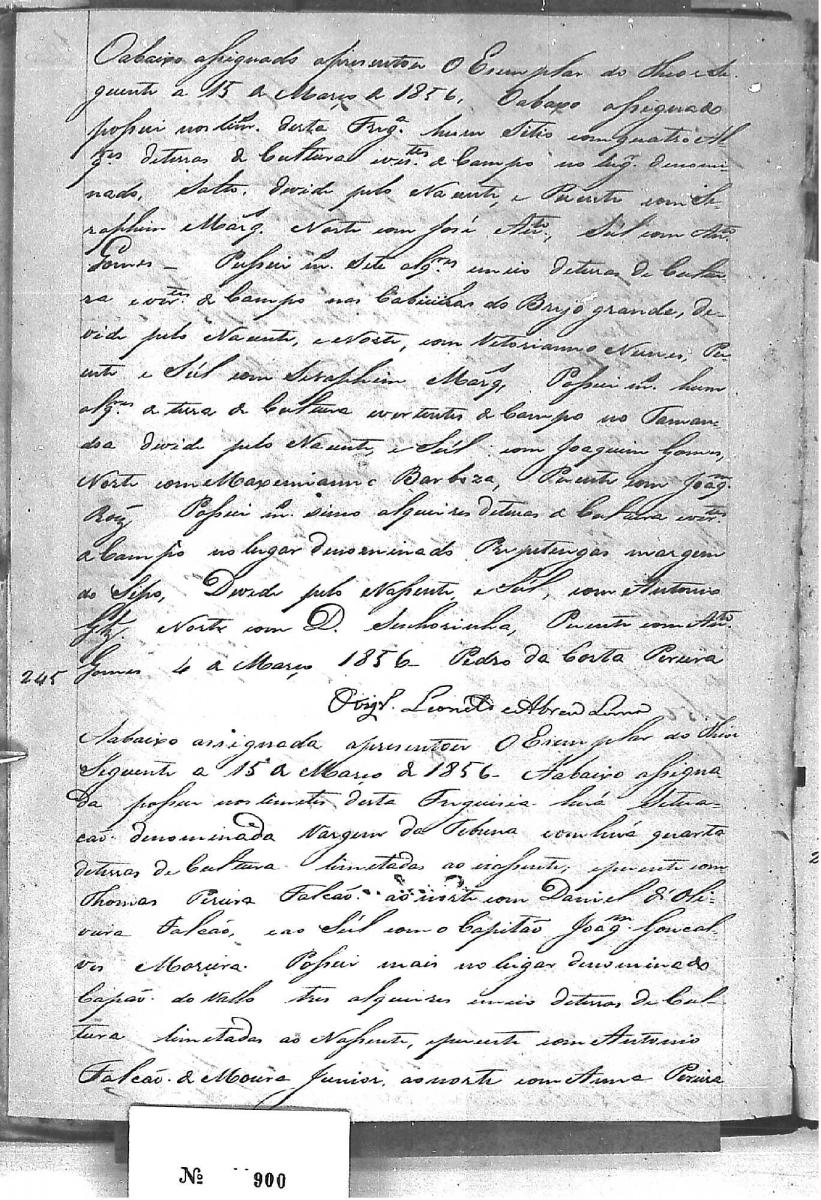 O abaixo assignado apresentou O Exemplar do Theor Se-
guente a 15 de Março de 1856, O abaxo assignado
possui nos lim. desta Frga. hum Sitio com quatro Al
qres de terras de Cultura e vertes de Campo no lugr. denomi-
nado, Salto, devide pelo Nacente, e Puente com Se-
raphim Marqs. Norte com José Anto., Sul com Anto.
Gomes - Possui ms. Sete alqres e meio de terras de Cultu-
ra e vertes de Campo nas Cabiceiras do Brejo grande, de-
vide pelo Nacente, e Norte, com Vetorianno Nunes, Pu-
ente e Sul com Seraphim Marqs, Possui ms. hum
alqres de terra de Cultura e vertentes de Campo no Taman-
dua devide pelo Nacente, e Sul com Joaquim Gomes,
Norte com Maxemianno Barboza, Puente com Joaqm.
Roiz, Possui ms. sinco alqueires de terras de Cultura e vertes
de Campo no lugar denominado Pepetengas margem
do Sipo, Devide pelo Nassente, e Sul, com Antonio
Norte com D. Senhorinha, Puente com Anto.
Gomes 4 de Março 1856 - Pedro da Costa Pereira
245
O Vigr. Leonel de Abreu Lima
A abaixo assignada apresentou O Exemplar do Theor
Seguente a 15 de Março de 1856 - A abaixo assigna
da possui nos limetes desta Freguisia huã Setua-
caõ denominada Vargem da Tebuna com huã quarta
de terras de Cultura limetadas ao nassente, e puente com
Thomas Pereira Falcaõ ao norte com Daniel d'Oli-
veira Falcaõ, e ao Sul com o Capitaõ Joaqm. Goncal-
ves Moreira. Possui mais no lugar denominado
Capaõ do Vallo tres alqueires e meio de terras de Cul-
tura limetadas ao Nassente, e puente com Antonio
Falcaõ de Moura Junior, ao norte com Anna Pereira
Nº 900